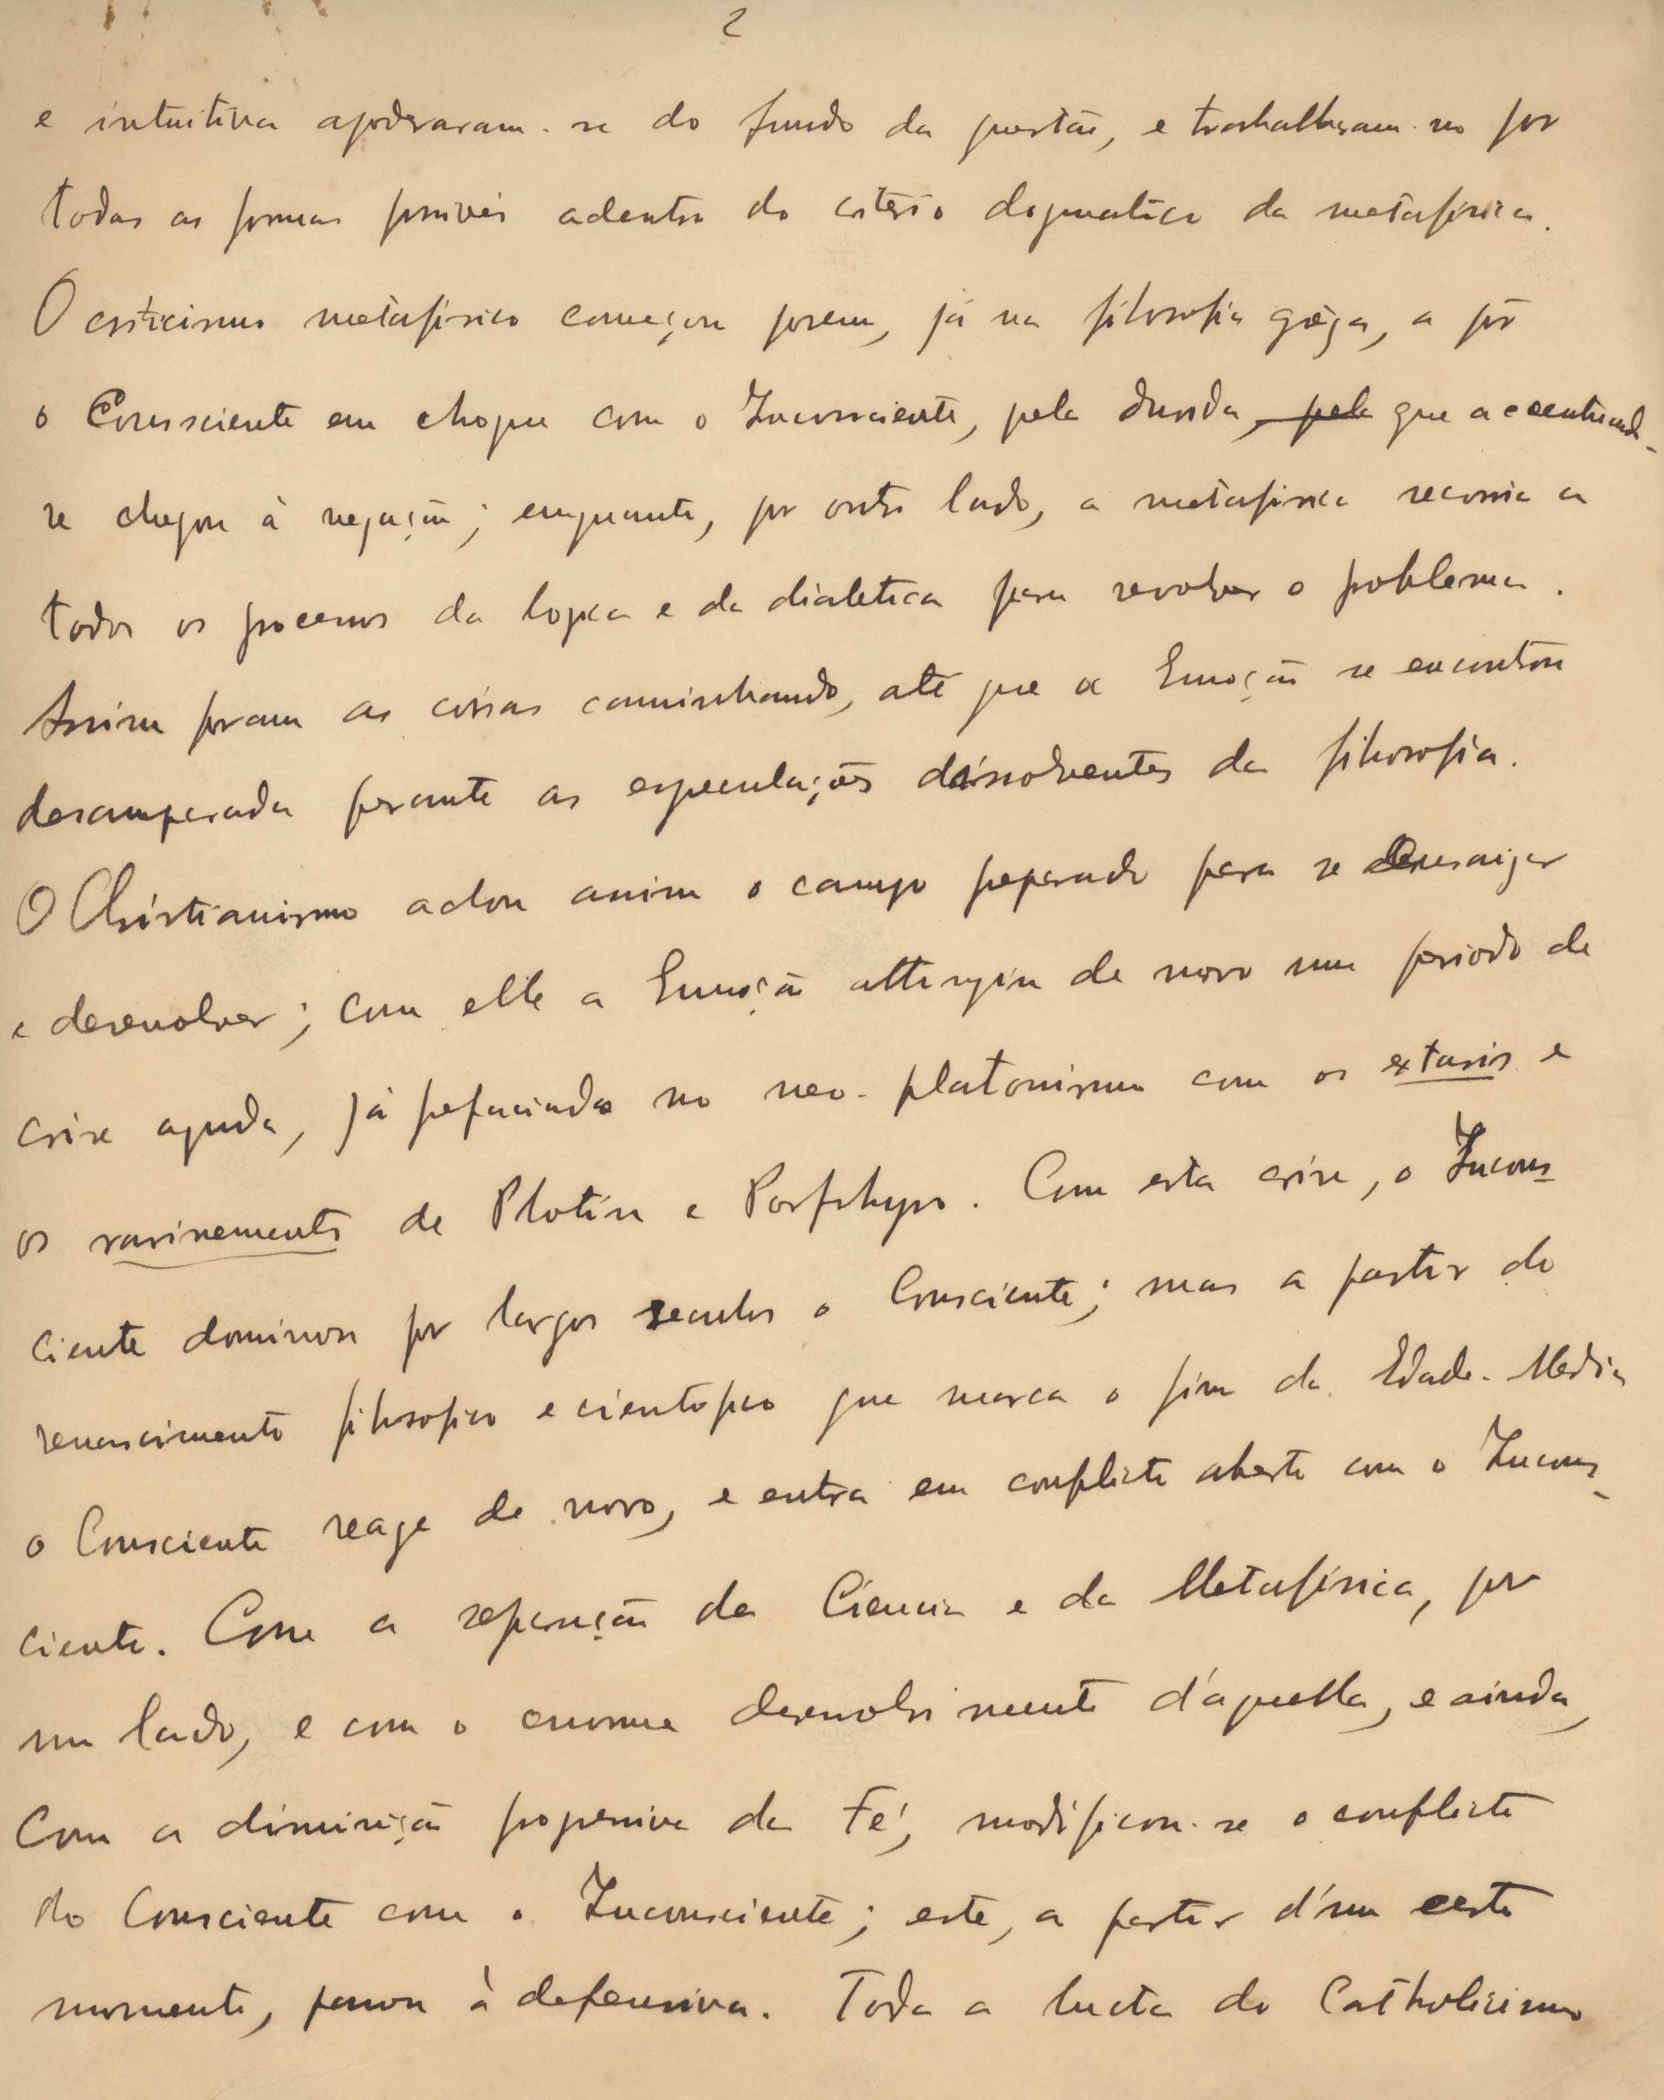 2
e intuitiva apoderaram-se do fundo da questão, e trabalharam-no por
todas as formas possiveis adentro do criterio dogmatico da metafisica.
O criticismo metafisico começou porem, já na filosofia grega, a pôr
o Consciente em choque com o Inconsciente, pela duvida, pela que accentuando-
se chegou à negação; emquanto, por outro lado, a metafisica recorria a
todos os processos da logica e da dialetica para resolver o problema.
Assim foram as coisas caminhando, até que a Emoção se encontrou
desamparada perante as especulações dissolventes da filosofia.
O Christianismo achou assim o campo preparado para se enraizar
e desenvolver; com elle a Emoção attingiu de novo um periodo de
crise aguda, já prefaciada no neo-platonismo com os extasis e
os ravissements de Plotin e Porphyro. Com esta crise, o Incons-
ciente dominou por largos seculos o Consciente; mas a partir do
renascimento filosofico e cientifico que marca o fim da Edade-Media
o Consciente reage de novo, e entra em conflicto aberto com o Incons-
ciente. Com a separação da Ciencia e da Metafisica, por
um lado, e com o enorme desenvolvimento d'aquella, e ainda,
com a diminuição progressiva da Fé, modificou-se o conflicto
do Consciente com o Inconsciente; este, a partir d'um certo
momento, passou à defensiva. Toda a lucta do Catholicismo